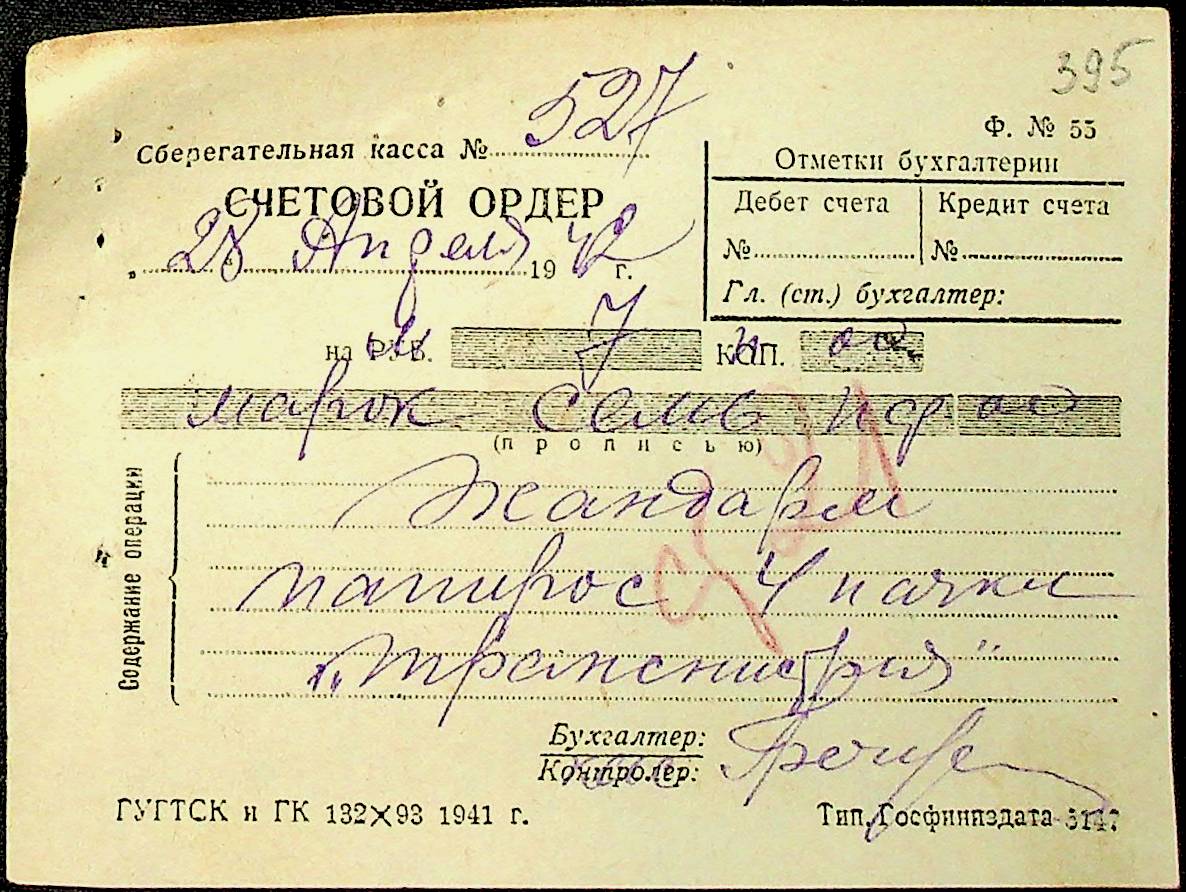 395
Ф. № 55
Сберегательная касса № 527
СЧЕТОВОЙ ОРДЕР
28 Апреля 1942 г.
Отметки бухгалтерии
Дебет счета Кредит счета
№ №
Гл. (ст.) бухгалтер:
на РУБ. 7 КОП. 00
марок семь пф 00
(прописью)
Содержание операции
Жандарм
папирос 4 пачки
Бухгалтер:
Контролер:
ГУГТСК и ГК 132×93 1941 г.
Тип. Госфиниздата 5147